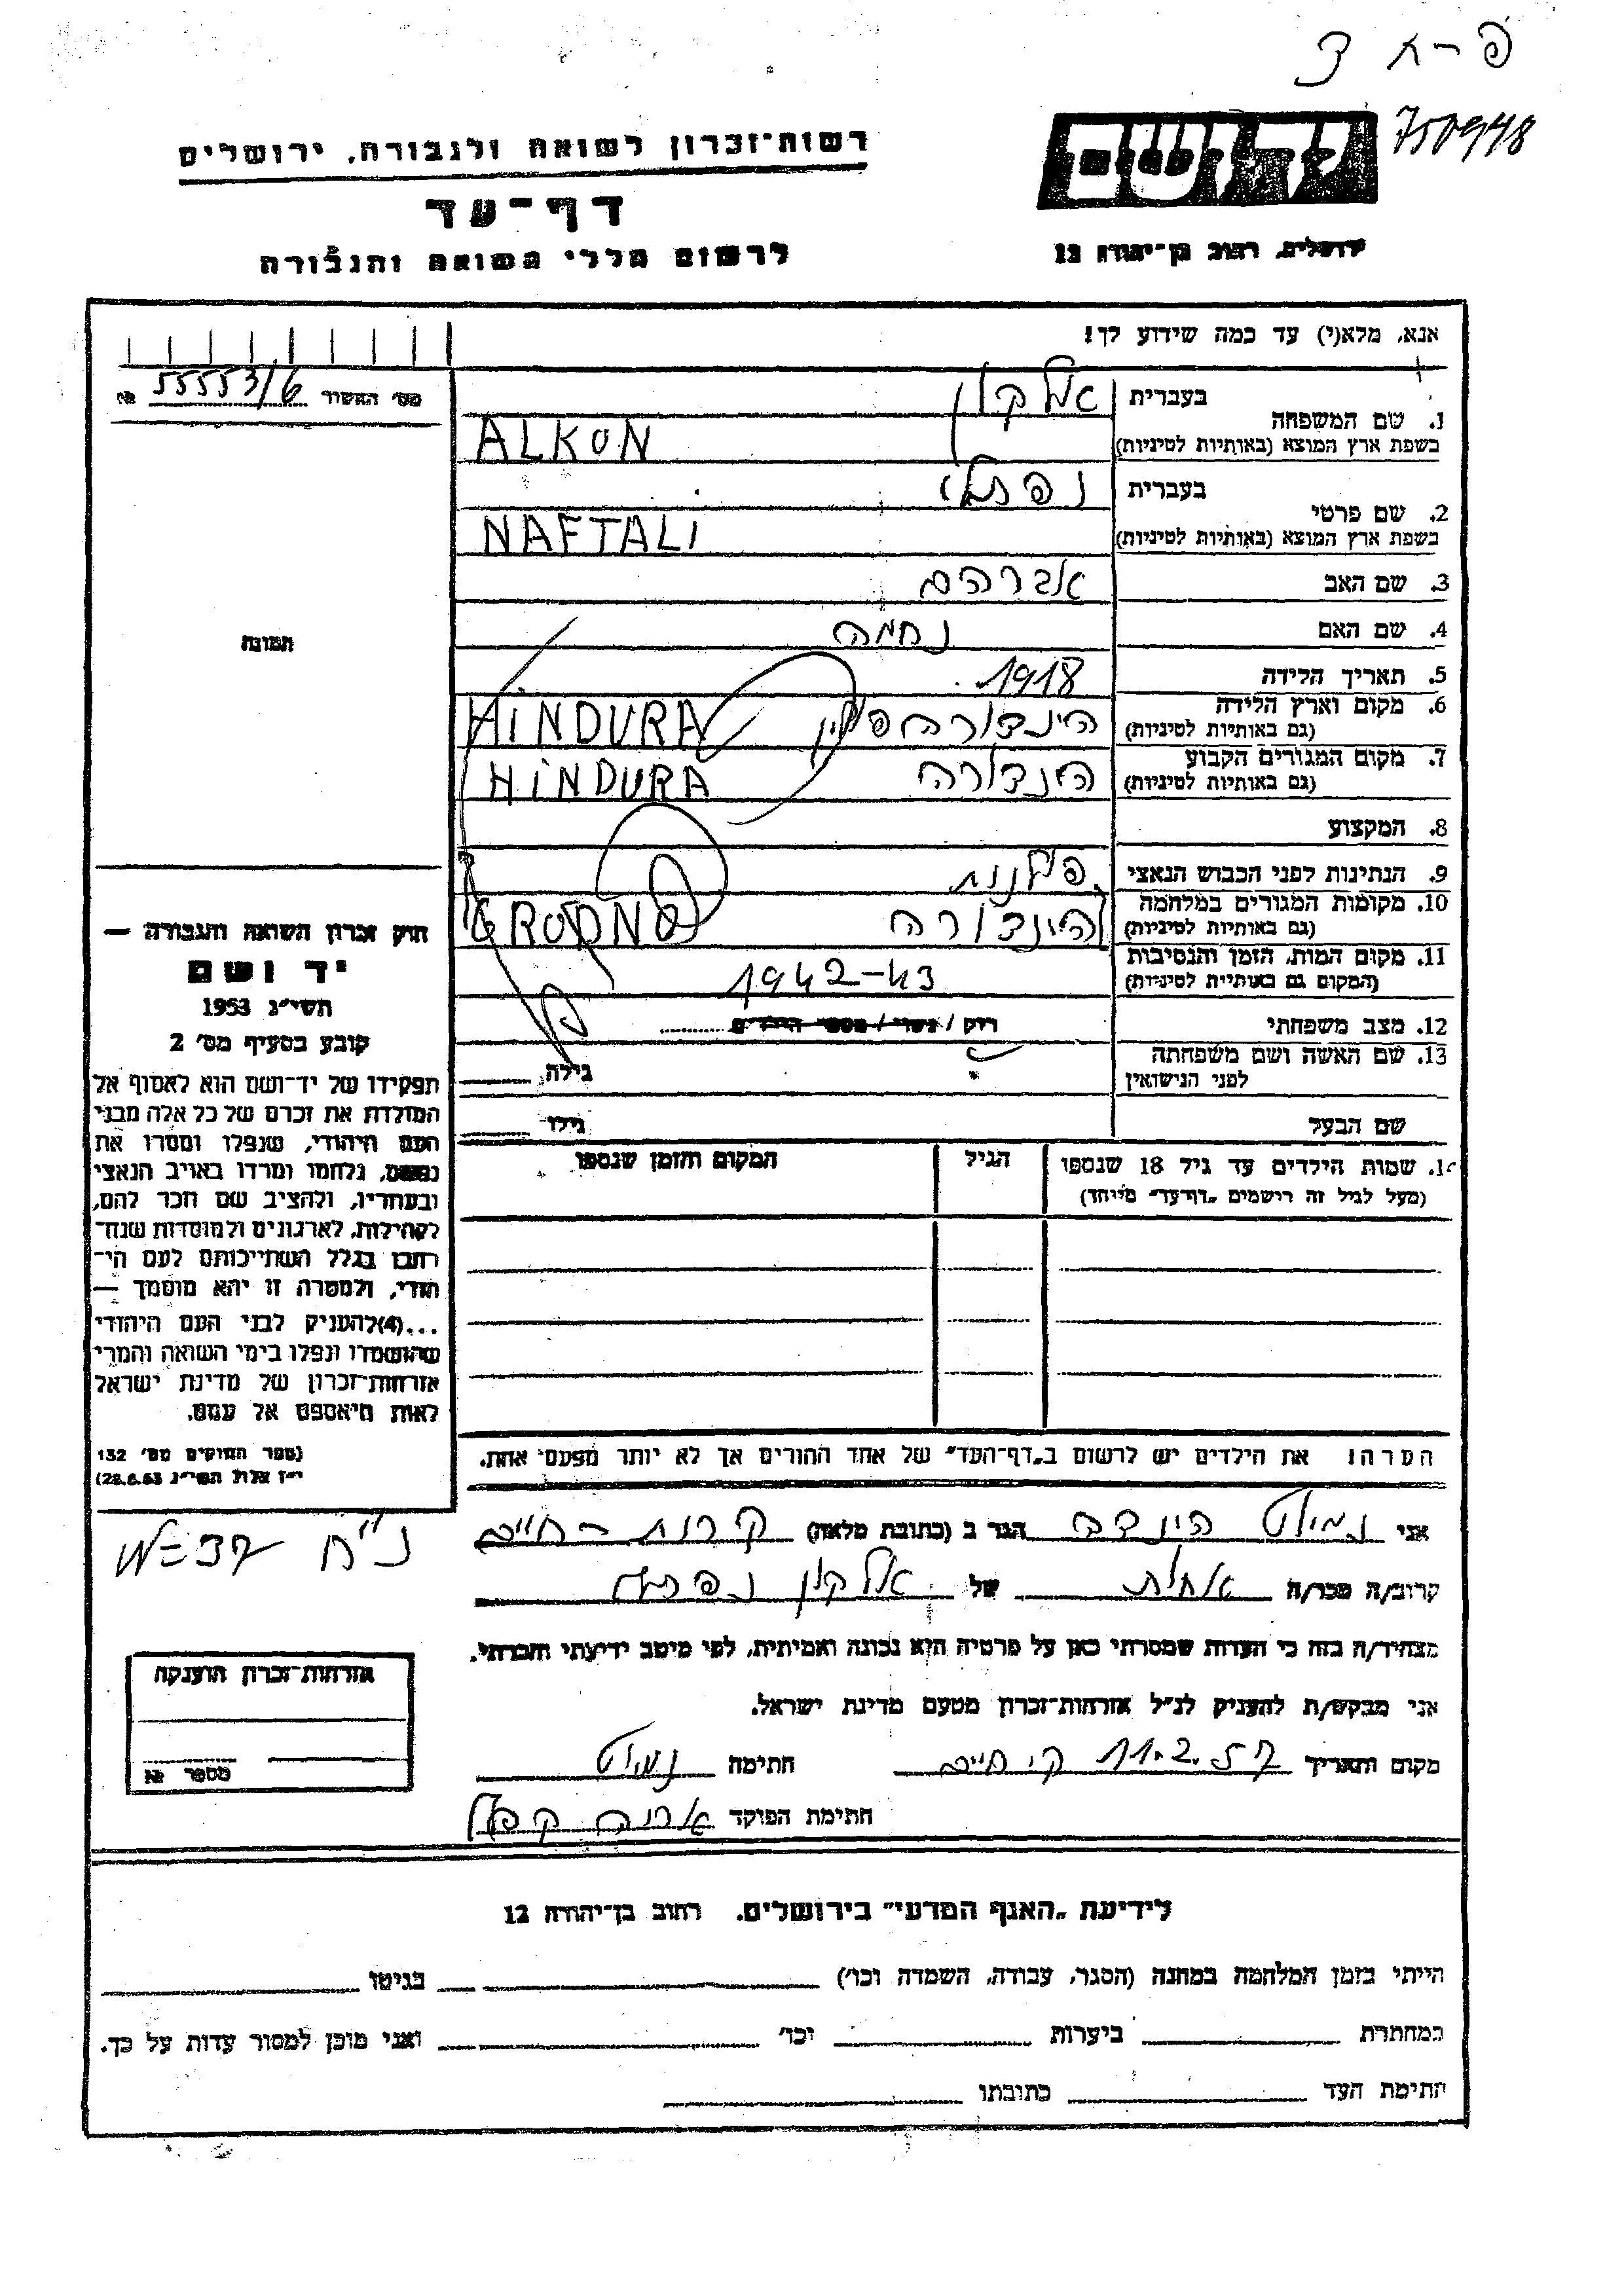 פ-ח 3
750948
יד ושם
ירושלים, רחוב בן-יהודה 12
רשות-זכרון לשואה ולגבורה, ירושלים
דף-עד
לרשום חללי השואה והגבורה
אנא, מלא(י) עד כמה שידוע לך!
מס׳ האשור 55553/6 №
1. שם המשפחה
בעברית אלקון
בשפת ארץ המוצא (באותיות לטיניות) ALKON
2. שם פרטי
בעברית נפתלי
בשפת ארץ המוצא (באותיות לטיניות) NAFTALI
3. שם האב אברהם
4. שם האם נחמה
5. תאריך הלידה 1918
6. מקום וארץ הלידה הינדורה פולין HiNDURA
(גם באותיות לטיניות)
7. מקום המגורים הקבוע הינדורה HiNDURA
(גם באותיות לטיניות)
8. המקצוע
9. הנתינות לפני הכבוש הנאצי פולנית
10. מקומות המגורים במלחמה הינדורה GRODNO
(גם באותיות לטיניות)
11. מקום המות, הזמן והנסיבות 1942-43
(המקום גם באותיות לטיניות)
12. מצב משפחתי רוק / נשוי / מספר הילדים
13. שם האשה ושם משפחתה
לפני הנישואין גילה
שם הבעל גילו
14. שמות הילדים עד גיל 18 שנספו הגיל המקום והזמן שנספו
(מעל לגיל זה רישמים „דף-עד״ מיוחד)
הערה: את הילדים יש לרשום ב„דף-העד״ של אחד ההורים אך לא יותר מפעם אחת.
תמונה
חוק זכרון השואה והגבורה —
יד ושם
תשי״ג 1953
קובע בסעיף מס׳ 2
תפקידו של יד-ושם הוא לאסוף אל
המולדת את זכרם של כל אלה מבני
העם היהודי, שנפלו ומסרו את
נפשם, נלחמו ומרדו באויב הנאצי
ובעוזריו, ולהציב שם וזכר להם,
לקהילות, לארגונים ולמוסדות שנח-
רבו בגלל השתייכותם לעם הי-
הודי, ולמטרה זו יהא מוסמך —
...(4)להעניק לבני העם היהודי
שהושמדו ונפלו בימי השואה והמרי
אזרחות-זכרון של מדינת ישראל
לאות היאספם אל עמם.
(ספר החוקים מס׳ 132
י״ז אלול תשי״ג 28.8.53)
אני הינדה הגר ב (כתובת מלאה) קרית-חיים
קרוב/ה מכר/ה אחות של אלקון נפתלי
מצהיר/ה בזה כי העדות שמסרתי כאן על פרטיה היא נכונה ואמיתית, לפי מיטב ידיעתי והכרתי.
אני מבקש/ת להעניק לנ״ל אזרחות-זכרון מטעם מדינת ישראל.
מקום ותאריך ק׳ חיים 11.2.57 חתימה
חתימת הפוקד אריה קפלן
נ״ח
אזרחות-זכרון הוענקה
מספר №
לידיעת „האגף המדעי״ בירושלים. רחוב בן-יהודה 12
הייתי בזמן המלחמה במחנה (הסגר, עבודה, השמדה וכו׳) בגיטו
במחתרת ביערות וכו׳ ואני מוכן למסור עדות על כך.
חתימת העד כתובתו